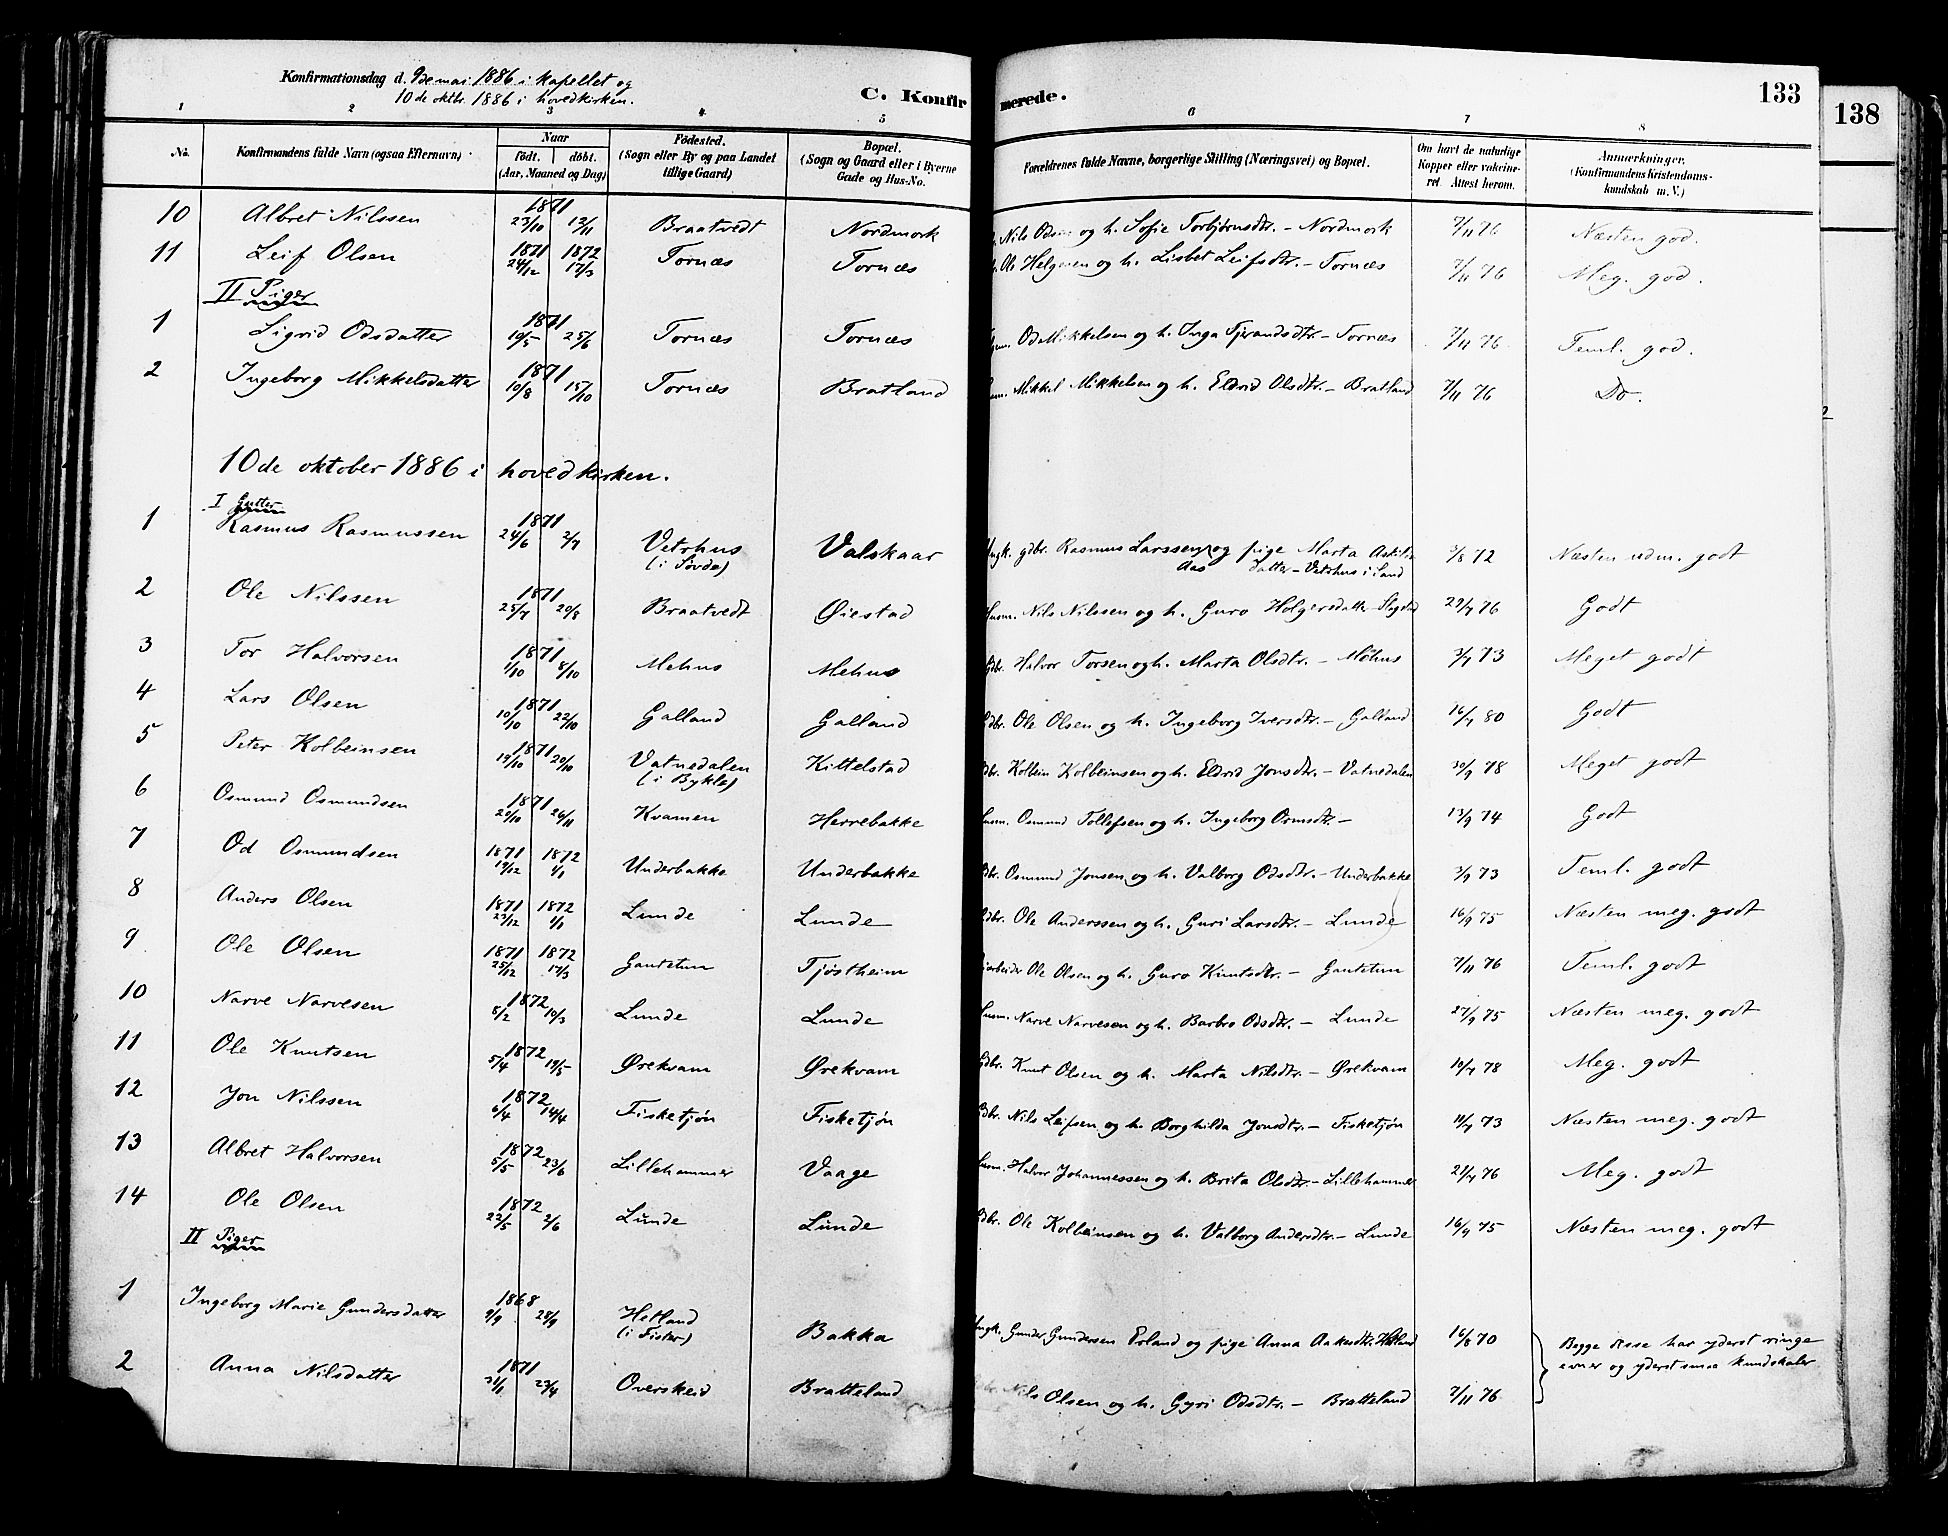 Konfirmationsdag d. 9de mai 1886 i kapellet og
10de oktbr. 1886 i hovedkirken.
C. Konfirmerede.
133
138
1 2 3 4 5 6 7 8
No. Konfirmandens fulde Navn (ogsaa Efternavn) Naar født. døbt. (Aar, Maaned og Dag) Fødested. (Sogn eller By og paa Landet tillige Gaard) Bopæl. (Sogn og Gaard eller i Byerne Gade og Hus-No. Forældrenes fulde Navne, borgerlige Stilling (Næringsvei) og Bopæl. Om havt de naturlige Kopper eller vakcineret. Attest herom. Anmerkninger. (Konfirmandens Kristendomskundskab m. V.)
10 Albret Nilssen 1871 23/10 12/11 Braatvedt Nordmork Nils Odsen og h. Sofie Torbjørnsdtr. – Nordmork 7/11 76 Næsten god.
11 Leif Olsen 1871 24/12 1872 17/3 Tornæs Tornæs Ole Helgesen og h. Lisbet Leifsdtr. – Tornæs 7/11 76 Meg. god.
II Piger
1 Sigrid Odsdatter 1871 19/5 25/6 Tornæs Tornæs Od Mikkelsen og h. Inga Tjerandsdtr. – Tornæs 7/11 76 Teml. god.
2 Ingeborg Mikkelsdatter 1871 10/8 15/10 Tornæs Bratland Mikkel Mikkelsen og h. Eldrid Olsdtr. – Bratland 7/11 76 Do.
10de oktober 1886 i hovedkirken.
I Gutter
1 Rasmus Rasmussen 1871 24/6 2/7 Vetrhus (i Søvde) Valskaar Ungk. gdbr. Rasmus Larssen Aas og pige Marta datter – Vetrhus i Sand 3/8 72 Næsten udm. godt
2 Ole Nilssen 1871 25/7 20/8 Braatvedt Øiestad Husm. Nils Nilssen og h. Guro Holgersdatter 29/7 76 Godt
3 Tor Halvorsen 1871 1/10 8/10 Mehus Mehus Gdbr. Halvor Torsen og h. Marta Olsdtr. – Mehus 3/7 73 Meget godt
4 Lars Olsen 1871 10/10 22/10 Galland Galland Gdbr. Ole Olsen og h. Ingeborg Iversdtr. – Galland 16/7 80 Godt
5 Peter Kolbeinsen 1871 19/10 29/10 Vatnedalen (i Bykle) Kittelstad Gdbr. Kolbein Kolbeinsen og h. Eldrid Jonsdtr. – Vatnedalen 30/9 78 Meget godt
6 Osmund Osmundsen 1871 29/10 26/11 Kvamen Herrebakke Husm. Osmund Tollefsen og h. Ingeborg Ormsdtr. – 13/9 74 Godt
7 Od Osmundsen 1871 19/12 1872 1/1 Underbakke Underbakke Gdbr. Osmund Jonsen og h. Valborg Odsdtr. – Underbakke 3/9 73 Teml. godt
8 Anders Olsen 1871 23/12 1872 1/1 Lunde Lunde Gdbr. Ole Anderssen og h. Guri Larsdtr. – Lunde 16/9 75 Næsten meg. godt
9 Ole Olsen 1871 25/12 1872 17/3 Gautetun Tjøstheim Ole Olsen og h. Guro Knutsdtr. – Gautetun 7/11 76 Teml. godt
10 Narve Narvesen 1872 5/2 10/3 Lunde Lunde Husm. Narve Narvesen og h. Barbro Odsdtr. – Lunde 27/9 75 Næsten meg. godt
11 Ole Knutsen 1872 5/4 19/5 Ørekvam Ørekvam Gdbr. Knut Olsen og h. Marta Nilsdtr. – Ørekvam 10/7 78 Meg. godt
12 Jon Nilssen 1872 6/4 14/4 Fisketjøn Fisketjøn Gdbr. Nils Leifsen og h. Borghilda Jonsdtr. – Fisketjøn 11/7 73 Næsten meg. godt
13 Albret Halvorsen 1872 5/5 23/6 Lillehammer Vaage Husm. Halvor Johannessen og h. Brita Olsdtr. – Lillehammer 21/7 76 Meg. godt
14 Ole Olsen 1872 22/5 2/6 Lunde Lunde Gdbr. Ole Kolbeinsen og h. Valborg Andersdtr. – Lunde 16/9 75 Næsten meg. godt
II Piger
1 Ingeborg Marie Gundersdatter 1868 9/9 28/9 Hetland (i Fister) Bakka Ungk. Gunder Gundersen Erland og pige Anna Hetland 16/8 70 Begge disse har yderst ringe
2 Anna Nilsdatter 1871 31/1 23/4 Overskeid Bratteland Nils Olsen og h. Gyri Odsdtr. – Bratteland 7/11 76 evner og yderst smaa kundskaber